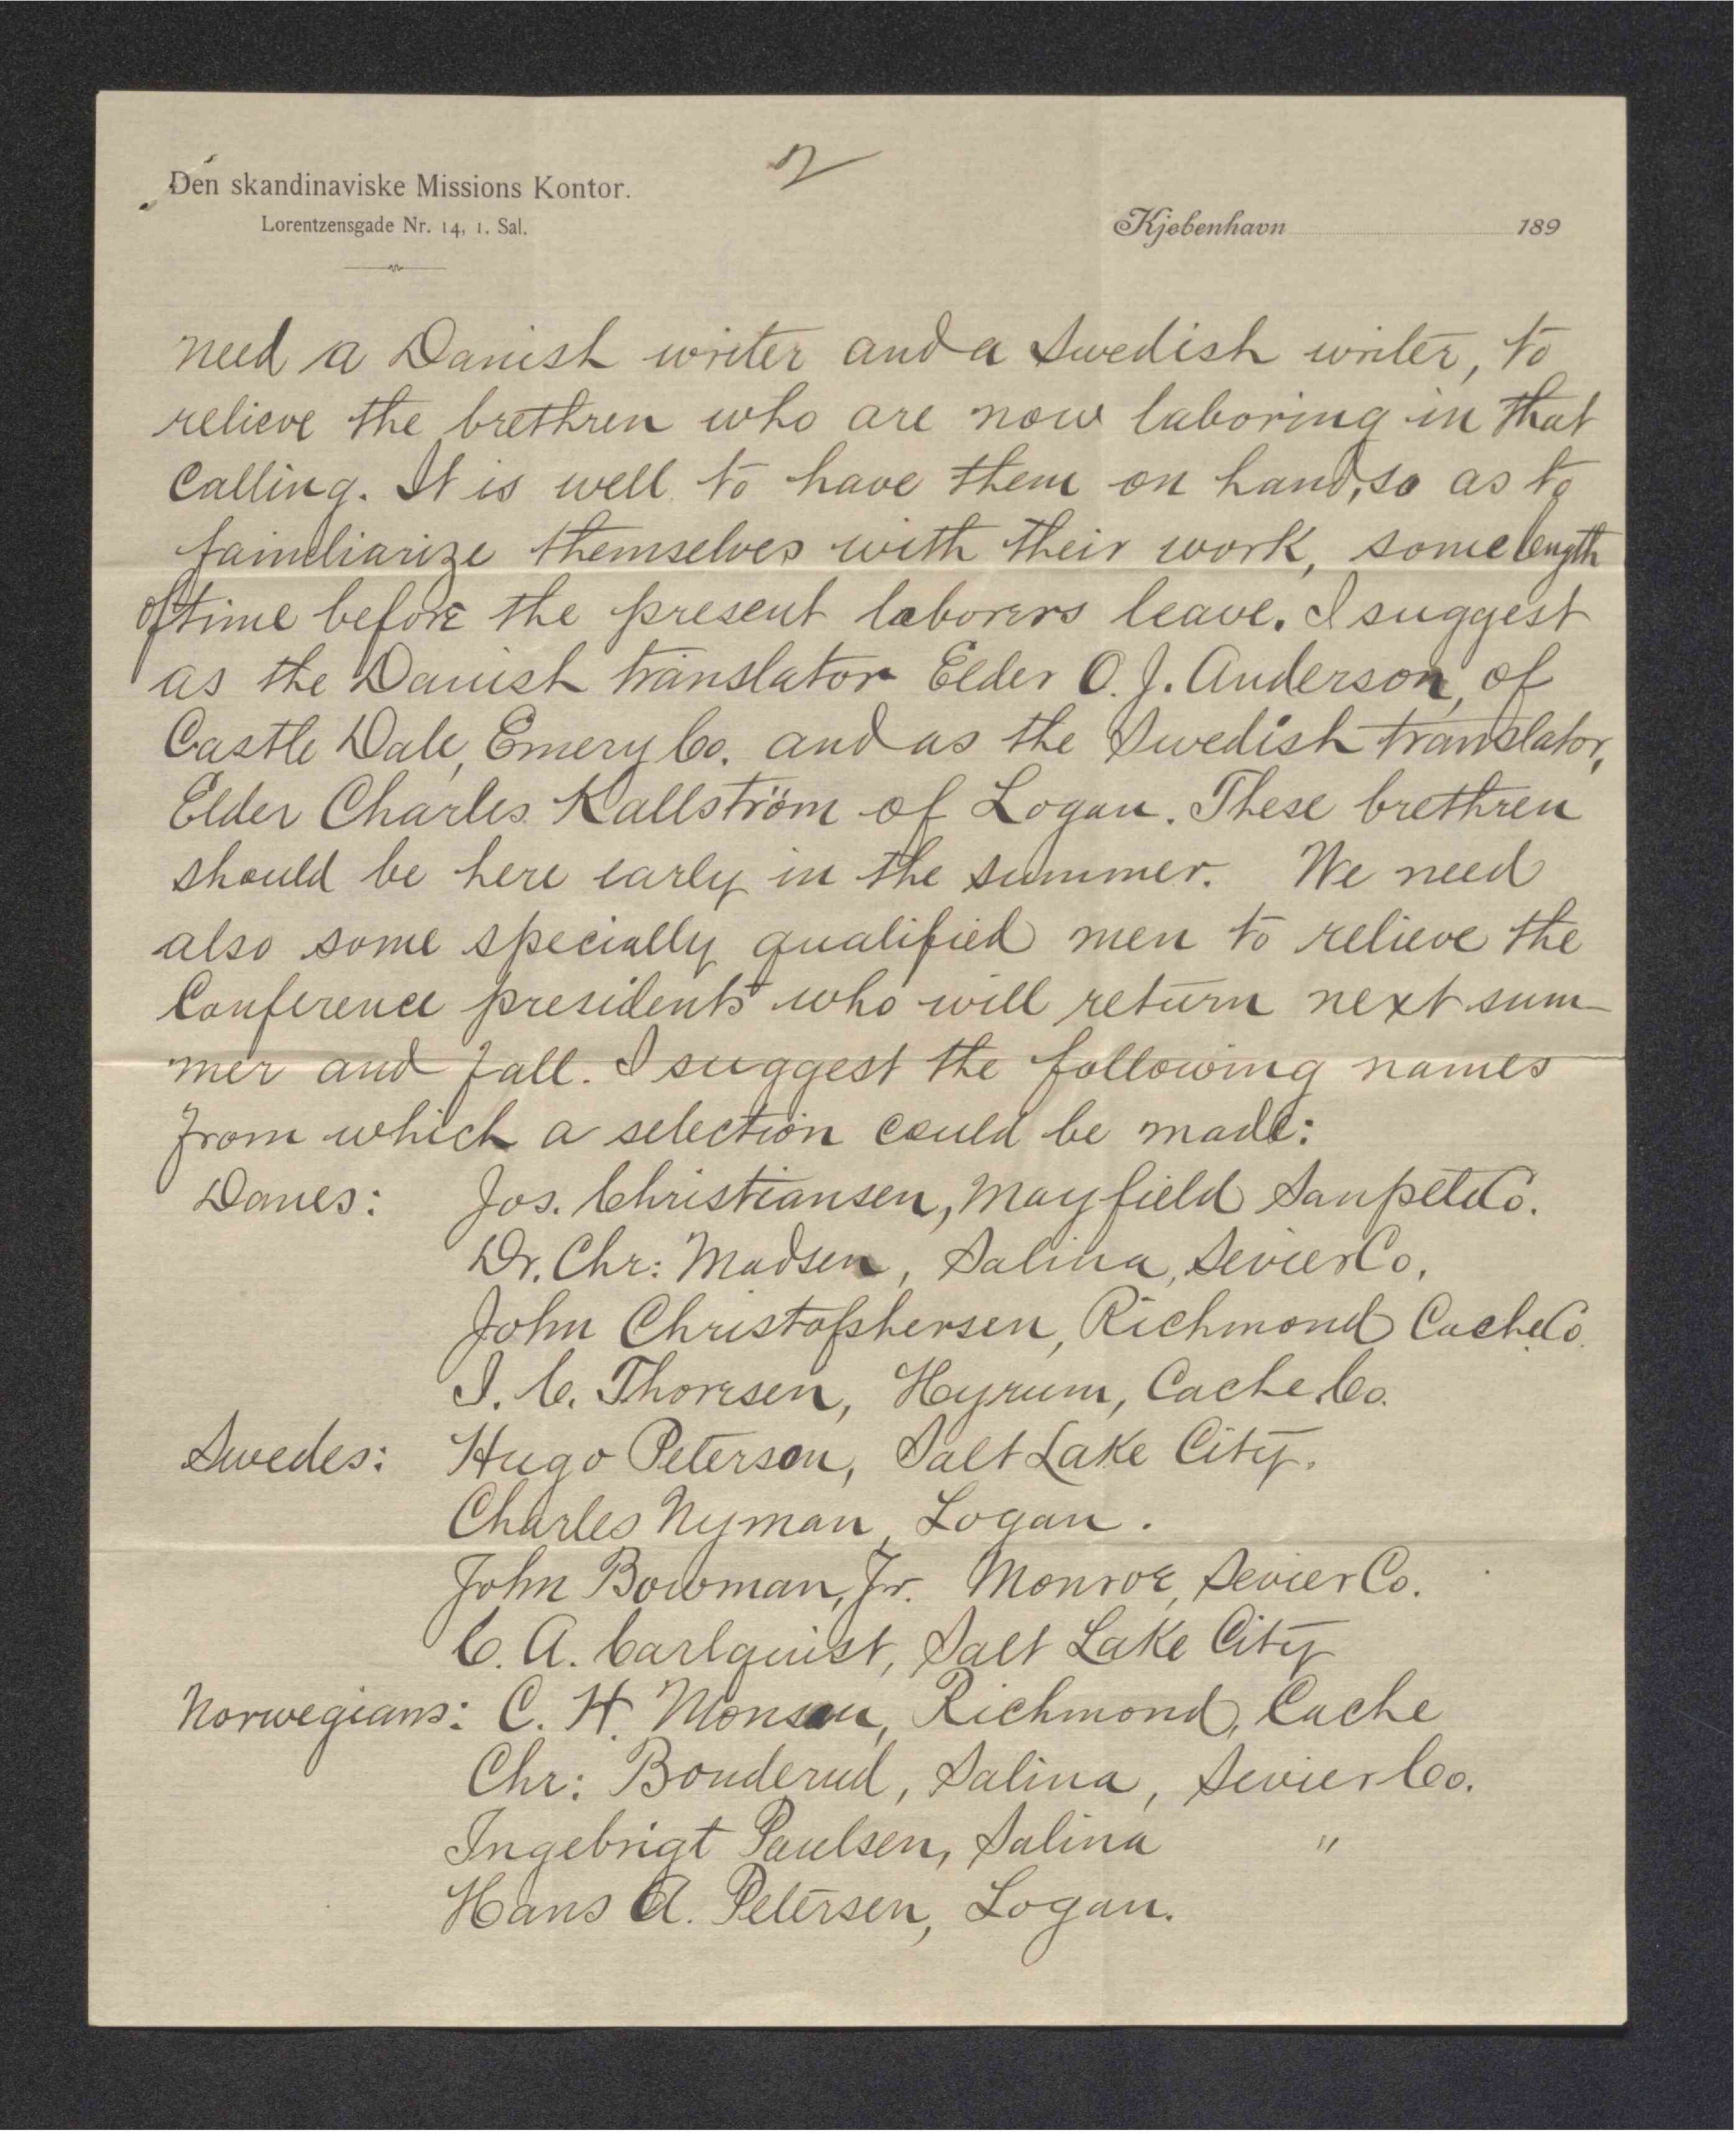 2
Den skandinaviske Missions Kontor.
Lorentzensgade Nr. 14, 1. Sal.
Kjøbenhavn 189
need a Danish writer and a Swedish writer, to
relieve the brethren who are now laboring in that
calling. It is well to have them on hand, so as to
familiarize themselves with their work, some length
of time before the present laborers leave. I suggest
as the Danish translator Elder O. J. Anderson, of
Castle Dale, Emery Co. and as the Swedish translator,
Elder Charles Kallström of Logan. These brethren
should be here early in the summer. We need
also some specially qualified men to relieve the
Conference presidents who will return next sum-
mer and fall. I suggest the following names
from which a selection could be made:
Danes: Jos. Christiansen, Mayfield Sanpete Co.
Dr. Chr: Madsen, Salina, Sevier Co.
John Christophersen, Richmond Cache Co.
I. C. Thoresen, Hyrum, Cache Co.
Swedes: Hugo Peterson, Salt Lake City.
Charles Nyman, Logan.
John Bowman, Jr. Monroe, Sevier Co.
C. A. Carlquist, Salt Lake City
Norwegians: C. H. Monson, Richmond, Cache
Chr: Bonderud, Salina, Sevier Co.
Ingebrigt Paulsen, Salina "
Hans A. Petersen, Logan.